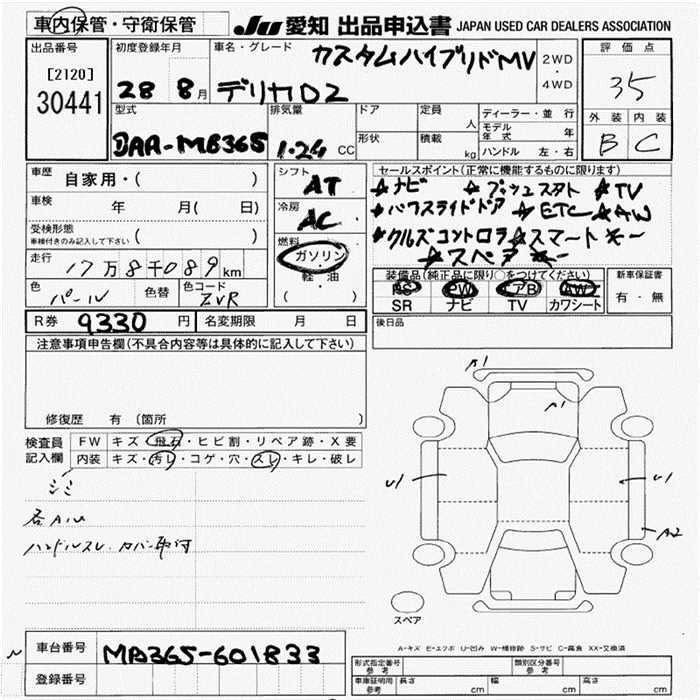 車内保管・守衛保管
JU 愛知 出品申込書 JAPAN USED CAR DEALERS ASSOCIATION
出品番号
[2120]
30441
初度登録年月
28 8月
車名・グレード
カスタムハイブリドMV
デリカD2
2WD
・
4WD
評価点
35
外装 内装
B C
型式
DAA-MB36S
排気量
1.24 CC
ドア
形状
定員 人
積載 kg
ディーラー・並行
モデル年式 年
ハンドル 左・右
車歴 自家用・( )
車検 年 月(日)
受検形態
車検付きのみ記入して下さい ( )
走行 17万8千089km
色 パール 色替 色コード ZVR
シフト AT
冷房 AC
燃料
ガソリン
・
軽・油
( )
セールスポイント(正常に機能するものに限ります)
☆ナビ ☆プッシュスタト ☆TV
☆パワスライドドア ☆ETC ☆AW
☆クルズコントロラ ☆スマートキー
☆スペアキー
装備品(純正品に限り○をつけてください)
PS PW エアB AW
SR ナビ TV カワシート
新車保証書
有・無
R券 9330円 名変期限 月 日
後日品
注意事項申告欄(不具合内容等は具体的に記入して下さい)
修復歴 有 (箇所 )
検査員記入欄
FW キズ・飛石・ヒビ割・リペア跡・X要
内装 キズ・汚レ・コゲ・穴・スレ・キレ・破レ
シミ
各AU
ハンドルスレ・カバー取付
A1
A1
U1
U1
A2
スペア
A-キズ E-エクボ U-凹み W-補修跡 S-サビ C-腐食 XX-交換済
車台番号 MB36S-601833
登録番号
形式指定番号 参考
類別区分番号 参考
車庫証明用 参考 長さ cm 幅 cm 高さ cm